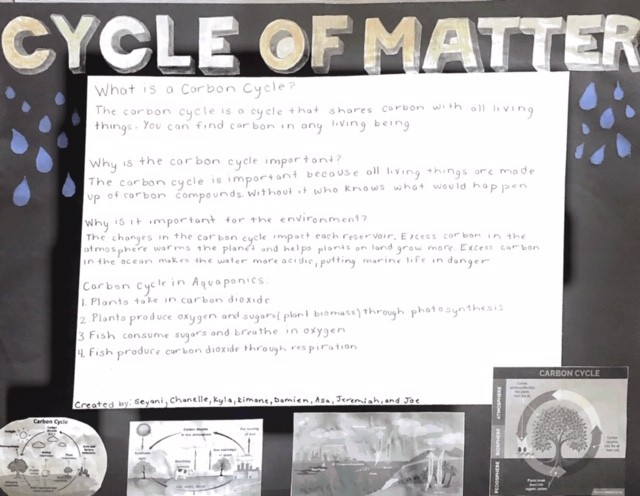 CYCLE OF MATTER
What is a Carbon Cycle?
The carbon cycle is a cycle that shares carbon with all living
things. You can find carbon in any living being
Why is the carbon cycle important?
The carbon cycle is important because all living things are made
up of carbon compounds. Without it who knows what would happen
Why is it important for the environment?
The changes in the carbon cycle impact each reservoir. Excess carbon in the
atmosphere warms the planet and helps plants on land grow more. Excess carbon
in the ocean makes the water more acidic, putting marine life in danger
Carbon Cycle in Aquaponics:
1. Plants take in carbon dioxide
2. Plants produce oxygen and sugars (plant biomass) through photosynthesis
3 Fish consume sugars and breathe in oxygen
4. Fish produce carbon dioxide through respiration
Created by: Geyani, Chanelle, Kyla, Kimane, Damien, Asa, Jeremiah, and Joe
Carbon Cycle
CARBON CYCLE
ATMOSPHERE
BIOSPHERE
PEDOSPHERE